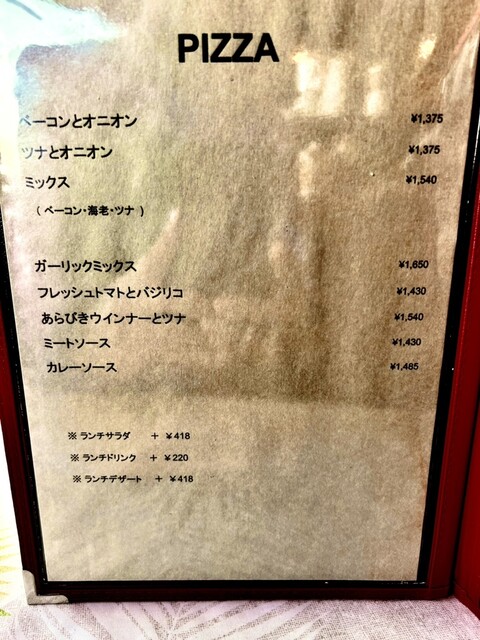 PIZZA
ベーコンとオニオン ¥1,375
ツナとオニオン ¥1,375
ミックス ¥1,540
( ベーコン・海老・ツナ )
ガーリックミックス ¥1,650
フレッシュトマトとバジリコ ¥1,430
あらびきウインナーとツナ ¥1,540
ミートソース ¥1,430
カレーソース ¥1,485
※ ランチサラダ + ¥418
※ ランチドリンク + ¥220
※ ランチデザート + ¥418